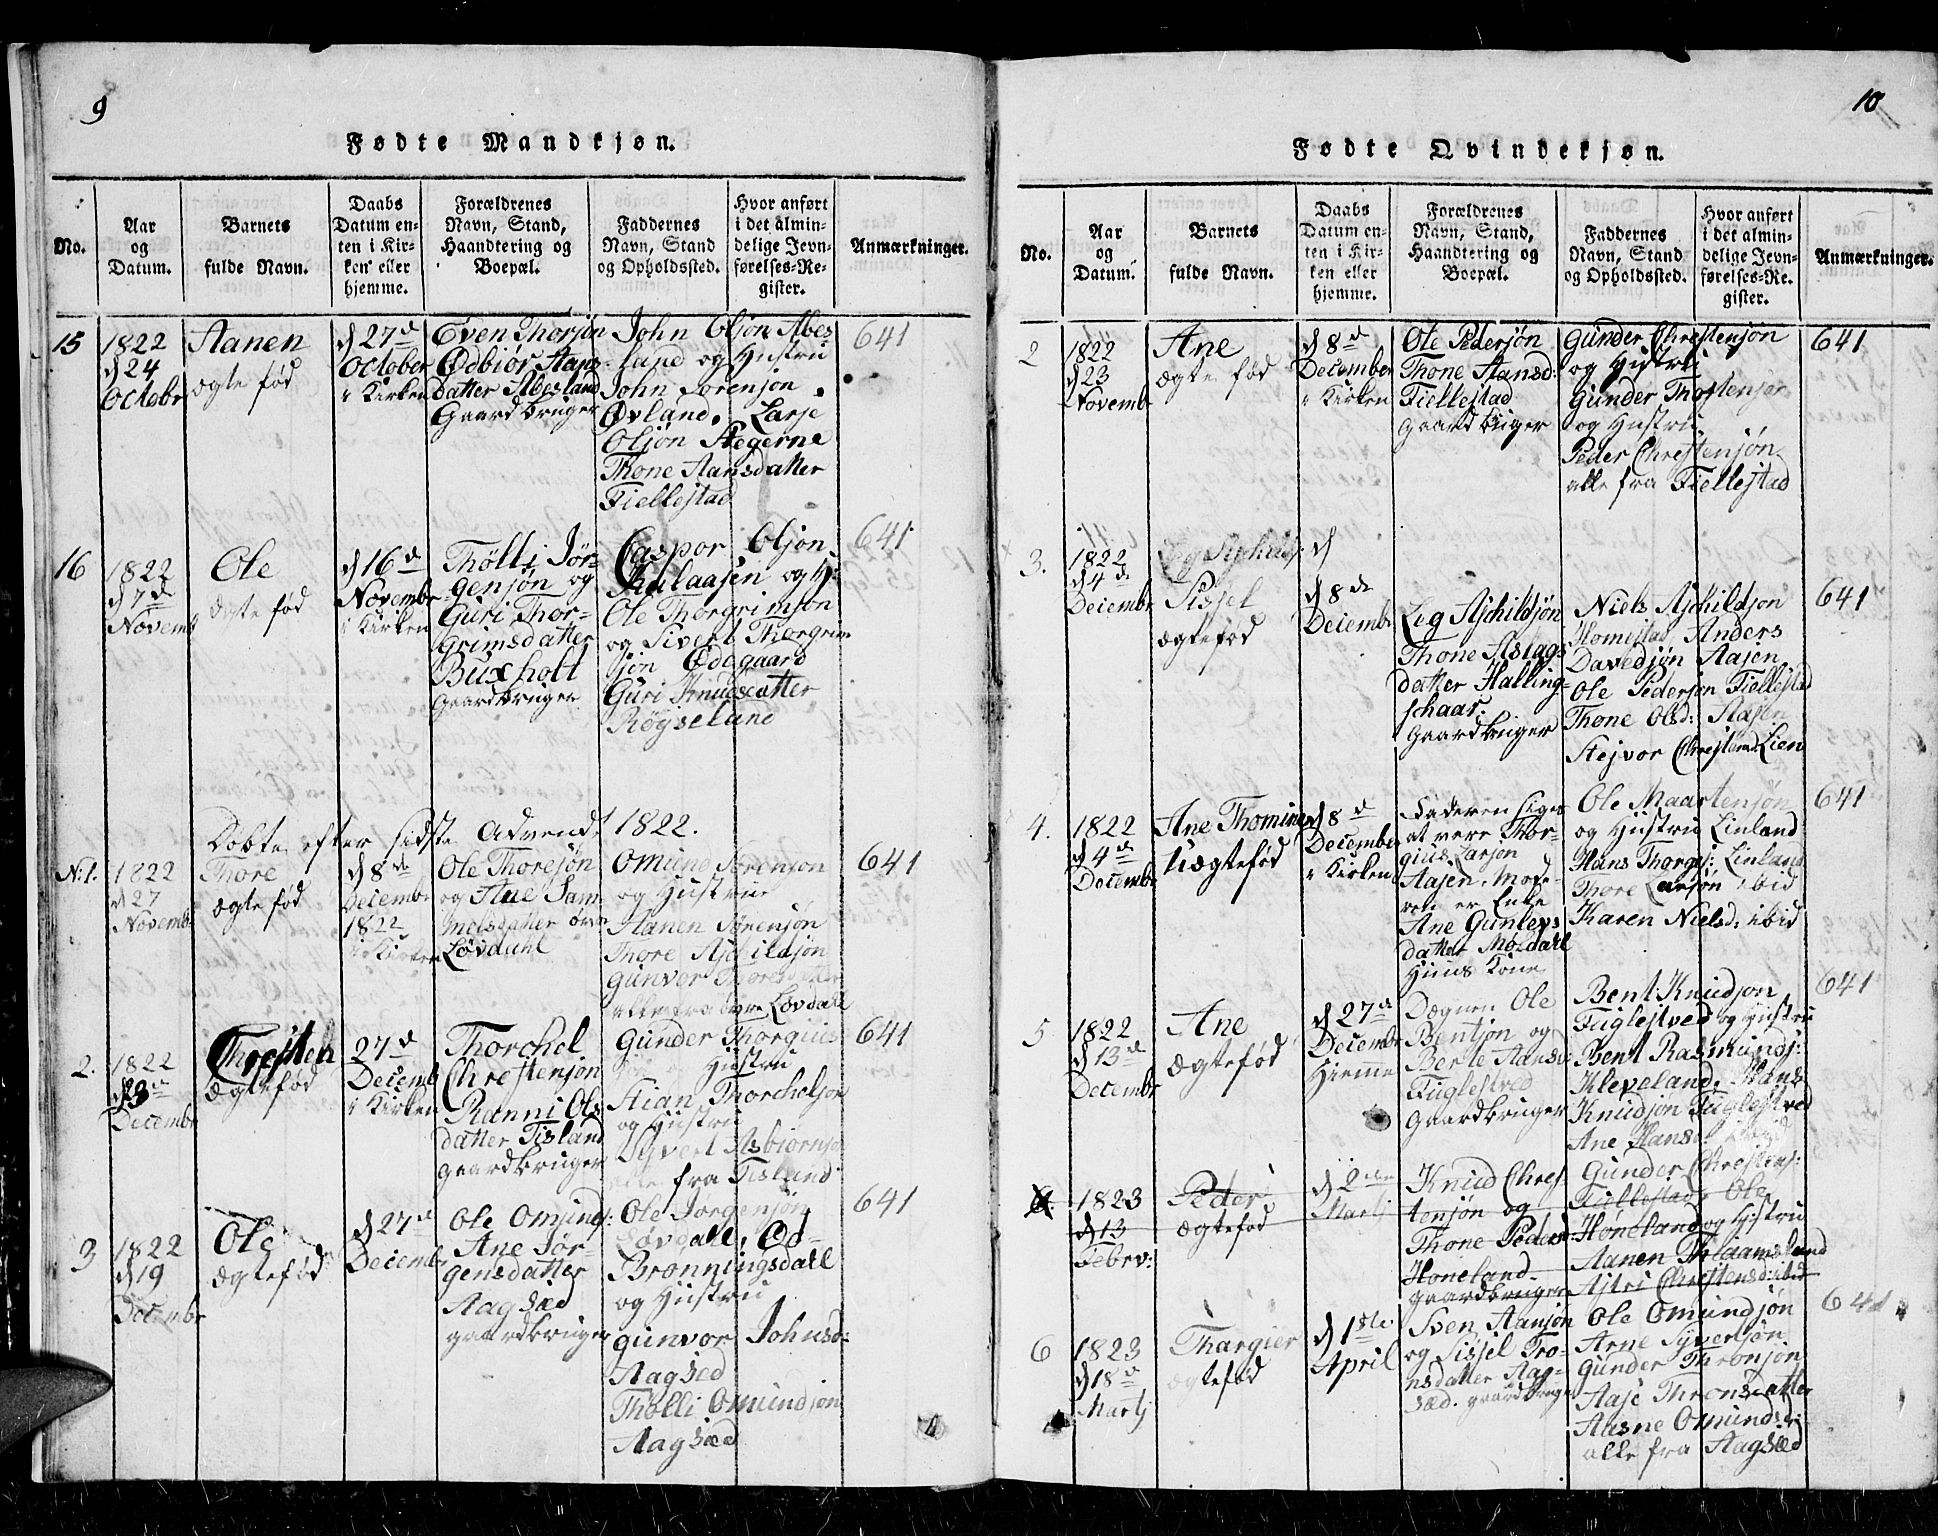 9
Fødte Mandkjøn.
No.
Aar
og
Datum.
Barnets
fulde Navn.
Daabs
Datum en-
ten i Kir-
ken eller
hjemme.
Forældrenes
Navn, Stand,
Haandtering og
Boepæl.
Faddernes
Navn, Stand
og Opholdssted.
Hvor anført
i det almin-
delige Jevn-
førelses-Re-
gister.
Anmærkninger.
15
1822
d 24
Octobr
Aanen
ægte fød
d 27d
October
i Kirken
Even Thorjøn
Ødbior Aans
datter Abesland
Gaardbruger
John Oljøn Abes-
land og Hustru
John Sørensøn
Øvland, Larse
Oljøn Stegerne
Thone Aansdatter
Fiellestad
641
16
1822
d 7d
Novemb
Ole
Ægte fød
d 16d
Novembr
i Kirken
Thølli Jør-
gensøn og
Guri Thor-
grimsdatter
Buxholt
Gaardbruger
Caspor Oljøn
og H:
Ole Thorgrimsøn
og Sivert Thorgrim
jøn Ødegaard
Guri Knudsdatter
Røyseland
641
Døbte efter sidste Advendt 1822.
N:1.
1822
d 27
Novemb
Thore
ægte fød
d 8de
Decembr
1822
i Kirken
Ole Thoresøn
og Ane Sam
melsdatter øvre
Løvdahl
Omund Sørensøn
og Hustrue
Aanen Sørensøn
Thore Ajchildsøn
Gunvor Thoresdatter
alle fra øvre Løvdall
641
2.
1822
d 3d
Decembr
ægtefød
27d
Decemb
i Kirken
Thorchel
Chrestensøn
Ranni Ols
datter Tisland
gaardbruger
Gunder Thorguis
Hustru
Stian Thorchelsøn
og Hustru
Syvert Asbiørnsø
fra Tisland
641
3
1822
d 19
Decembr
Ole
ægtefød
d 27d
Decembr
Ole Omunds:
Ane Jør-
gensdatter
Aagsæd
gaardbruger
Ole Jørgensøn
Løvdall, Od-
Brønningsdall
og Hustru
gunvor Johnsd:
Aagsæd
Thølli Omundsøn
Aagsæd
641
10
Fødte Qvindekjøn.
No.
Aar
og
Datum.
Barnets
fulde Navn.
Daabs
Datum en-
ten i Kir-
ken eller
hjemme.
Forældrenes
Navn, Stand,
Haandtering og
Boepæl.
Faddernes
Navn, Stand
og Opholdssted.
Hvor anført
i det almin-
delige Jevn-
førelses-Re-
gister.
Anmærkninger.
2
1822
d 23
Novembr
Ane
ægte fød
d 8d
December
i Kirken
Ole Pedersøn
Thone Aansd:
Fiellestad
gaardbruger
Gunder Chrestensøn
og Hustru
Gunder Thostensøn
og Hustru
Peder Chrestensøn
alle fra Fiellestad
641
3.
1822
d 4de
Decembr
Sissel
ægtefød
d
d 8de
Decembr
Leg Ajchildsøn
Thone Aslags
datter Halling-
schaar.
Gaardbruger
Niels Ajchildsøn
Homestad, Anders
Davedsøn Aasen
Ole Pedersøn Fiellestad
Thone Olsd: Aasen
Stejvor Chrestensd: Lien
641
4.
1822
d 4de
Decembr
Ane Thomine
Uægtefød
d 8d
December
i Kirken
Faderen siges
at vere Thor-
gius Larsøn
Aasen. Mode-
ren er Enke
Ane Gunleus
datter Møldall
Huus Kone
Ole Maartensøn
og Hustru Linland
Hans Thorgs: Linland
Thore Larsøn ibid
Karen Nielsd: ibid
641
5
1822
d 13d
Decembr
Ane
ægtefød
d 27d
Decembr
Hieme
Dægnen Ole
Bentsøn og
Berte Aansd:
Fuglestved
Gaardbruger
Bent Knudsøn
Fuglestved og Hustru
Bent Rasmunds:
Kleveland, Hans
Knudsøn Fuglestved
Ane Hansd ibid
641
6.
1823
d 13
Febrv:
Peder
ægtefød
d 2den
Martj
Knud Chres-
tensøn og
Thone Pedersd:
Honeland
gaardbruger
Gunder Chrestens:
Fiellestad, Ole
Høneland og Hustru
Aanen Thelaamsland
Astri Chrestensd: ibid
6
1823
d 18d
Martj
Thargier
ægtefød
d 1ste
April
Sven Aansøn
og Sissel Tro-
nsdatter Aag-
sæd. gaardbruger
Ole Omundsøn
Arne Syversøn
Gunder Thronsøn
Aase Thronsdatter
Aasne Omundsd:
alle fra Aagsæd
641